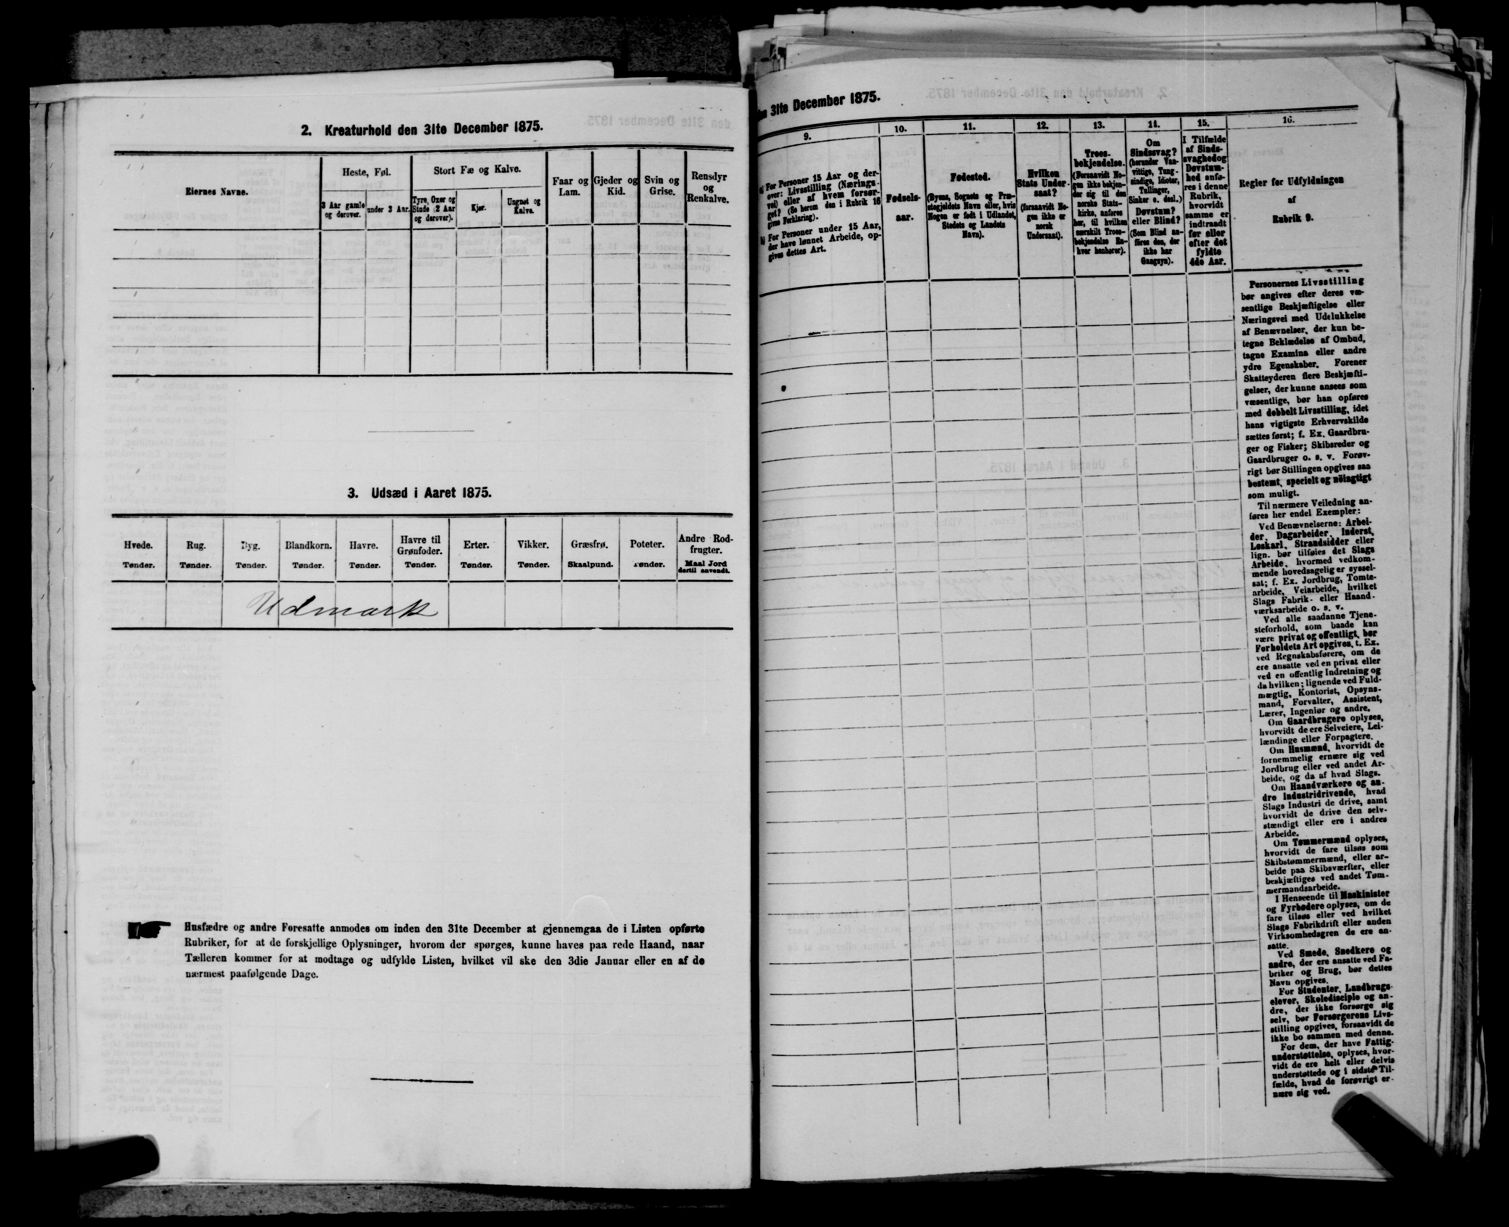 2. Kreaturhold den 31te December 1875.
Eiernes Navne.
Heste, Føl.
3 Aar gamle og derover.
under 3 Aar.
Stort Fæ og Kalve.
Tyre, Oxer og Stude 2 Aar og derover.
Kjør.
Ungnøt og Kalve.
Faar og Lam.
Gjeder og Kid.
Svin og Grise.
Rensdyr og Renkalve.
3. Udsæd i Aaret 1875.
Hvede. Rug. Byg. Blandkorn. Havre. Havre til Grønfoder. Erter. Vikker. Græsfrø. Poteter. Andre Rodfrugter.
Tønder. Tønder. Tønder. Tønder. Tønder. Tønder. Tønder. Tønder. Skaalpund. Tønder. Maal Jord dertil anvendt.
Udmark
Husfædre og andre Foresatte anmodes om inden den 31te December at gjennemgaa de i Listen opførte
Rubriker, for at de forskjellige Oplysninger, hvorom der spørges, kunne haves paa rede Haand, naar
Tælleren kommer for at modtage og udfylde Listen, hvilket vil ske den 3die Januar eller en af de
nærmest paafølgende Dage.
den 31te December 1875.
9. 10. 11. 12. 13. 14. 15. 16.
a) For Personer 15 Aar og derover: Livsstilling (Næringsvei) eller af hvem forsørget? (Se herom den i Rubrik 16 givne Forklaring).
b) For Personer under 15 Aar, der have lønnet Arbeide, opgives dettes Art.
Fødselsaar.
Fødested.
(Byens, Sognets og Præstegjeldets Navn eller, hvis Nogen er født i Udlandet, Stedets og Landets Navn).
Hvilken Stats Undersaat?
(forsaavidt Nogen ikke er norsk Undersaat).
Troesbekjendelse.
(Forsaavidt Nogen ikke bekjender sig til den norske Statskirke, anføres her, til hvilken særskilt Troesbekjendelse Enhver henhører).
Om Sindssvag?
(herunder Vanvittige, Tungsindige, Idioter, Tullinger, Sinker o. desl.)
Døvstum?
eller Blind?
(Som Blind anføres den, der ikke har Gangsyn).
I Tilfælde af Sindssvaghed og Døvstumhed anføres i denne Rubrik, hvorvidt samme er indtraadt før eller efter det fyldte 4de Aar.
Regler for Udfyldningen
af
Rubrik 9.
Personernes Livsstilling
bør angives efter deres væ-
sentlige Beskjæftigelse eller
Næringsvei med Udelukkelse
af Benævnelser, der kun be-
tegne Beklædelse af Ombud,
tagne Examina eller andre
ydre Egenskaber. Forener
Skatteyderen flere Beskjæfti-
gelser, der kunne ansees som
væsentlige, bør han opføres
med dobbelt Livsstilling, idet
hans vigtigste Erhvervskilde
sættes først; f. Ex. Gaardbru-
ger og Fisker; Skibsreder og
Gaardbruger o. s. v. Forøv-
rigt bør Stillingen opgives saa
bestemt, specielt og nøiagtigt
som muligt.
Til nærmere Veiledning an-
føres her endel Exempler:
Ved Benævnelserne: Arbei-
der, Dagarbeider, Inderst,
Løskarl, Strandsidder eller
lign. bør tilføies det Slags
Arbeide, hvormed vedkom-
mende hovedsagelig er syssel-
sat; f. Ex. Jordbrug, Tomte-
arbeide, Veiarbeide, hvilket
Slags Fabrik- eller Haand-
værksarbeide o. s. v.
Ved alle saadanne Tjene-
steforhold, som baade kan
være privat og offentligt, bør
Forholdets Art opgives, f. Ex.
ved Regnskabsførere, om de
ere ansatte ved en privat eller
ved en offentlig Indretning og
da hvilken; lignende ved Fuld-
mægtig, Kontorist, Opsyns-
mand, Forvalter, Assistent,
Lærer, Ingeniør og andre.
Om Gaardbrugere oplyses,
hvorvidt de ere Selveiere, Lei-
lændinge eller Forpagtere.
Om Husmænd, hvorvidt de
fornemmelig ernære sig ved
Jordbrug eller ved andet Ar-
beide, og da af hvad Slags.
Om Haandværkere og an-
dre Industridrivende, hvad
Slags Industri de drive, samt
hvorvidt de drive den selv-
stændigt eller ere i andres
Arbeide.
Om Tømmermænd oplyses,
hvorvidt de fare tilsøs som
Skibstømmermænd, eller ar-
beide paa Skibsværfter, eller
beskjæftiges ved andet Tøm-
mermandsarbeide.
I Henseende til Maskinister
og Fyrbødere oplyses, om de
fare tilsøs eller ved hvilket
Slags Fabrikdrift eller anden
Virksomhedsgren de ere an-
satte.
Ved Smede, Snedkere og
andre, der ere ansatte ved Fa-
briker og Brug, bør dettes
Navn opgives.
For Studenter, Landbrugs-
elever, Skoledisciple og an-
dre, der ikke forsørge sig
selv, bør Forsørgerens Livs-
stilling opgives, forsaavidt de
ikke bo sammen med denne.
For dem, der have Fattig-
understøttelse, oplyses, hvor-
vidt de ere helt eller delvis
understøttede og i sidste Til-
fælde, hvad de forøvrigt er-
nære sig ved.